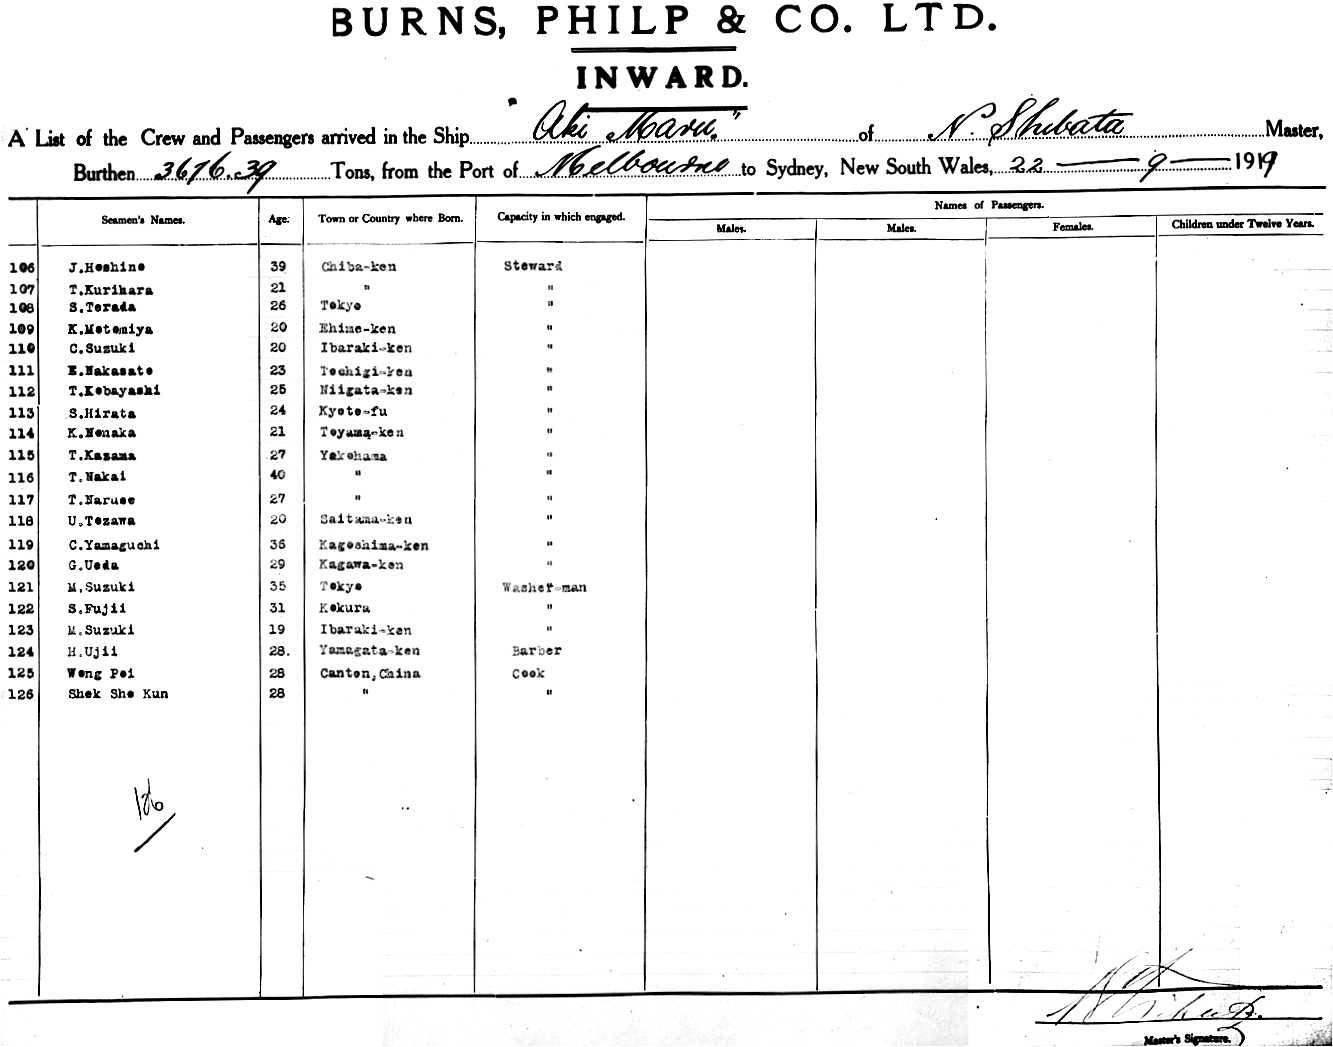 BURNS, PHILP & CO. LTD.
INWARD.
A List of the Crew and Passengers arrived in the Ship "Aki Maru." of N. Shibata Master,
Burthen 3676.39 Tons, from the Port of Melbourne to Sydney, New South Wales, 22 — 9 — 1919
Names of Passengers.
Seamen's Names. Age. Town or Country where Born. Capacity in which engaged. Males. Males. Females. Children under Twelve Years.
106 J.Hoshino 39 Chiba-ken Steward
107 T.Kurihara 21 " "
108 S.Terada 26 Tokyo "
109 K.Motomiya 20 Ehime-ken "
110 C.Suzuki 20 Ibaraki-ken "
111 K.Nakasato 23 Tochigi-ken "
112 T.Kobayashi 25 Niigata-ken "
113 S.Hirata 24 Kyoto-fu "
114 K.Nonaka 21 Toyama-ken "
115 T.Kazama 27 Yokohama "
116 T.Nakai 40 " "
117 T.Naruse 27 " "
118 U.Tozawa 20 Saitama-ken "
119 C.Yamaguchi 36 Kagoshima-ken "
120 G.Ueda 29 Kagawa-ken "
121 M.Suzuki 35 Tokyo Washer-man
122 S.Fujii 31 Kokura "
123 M.Suzuki 19 Ibaraki-ken "
124 H.Ujii 28. Yamagata-ken Barber
125 Wong Poi 28 Canton,China Cook
126 Shek Sho Kun 28 " "
126
N Shibata.
Master's Signature.